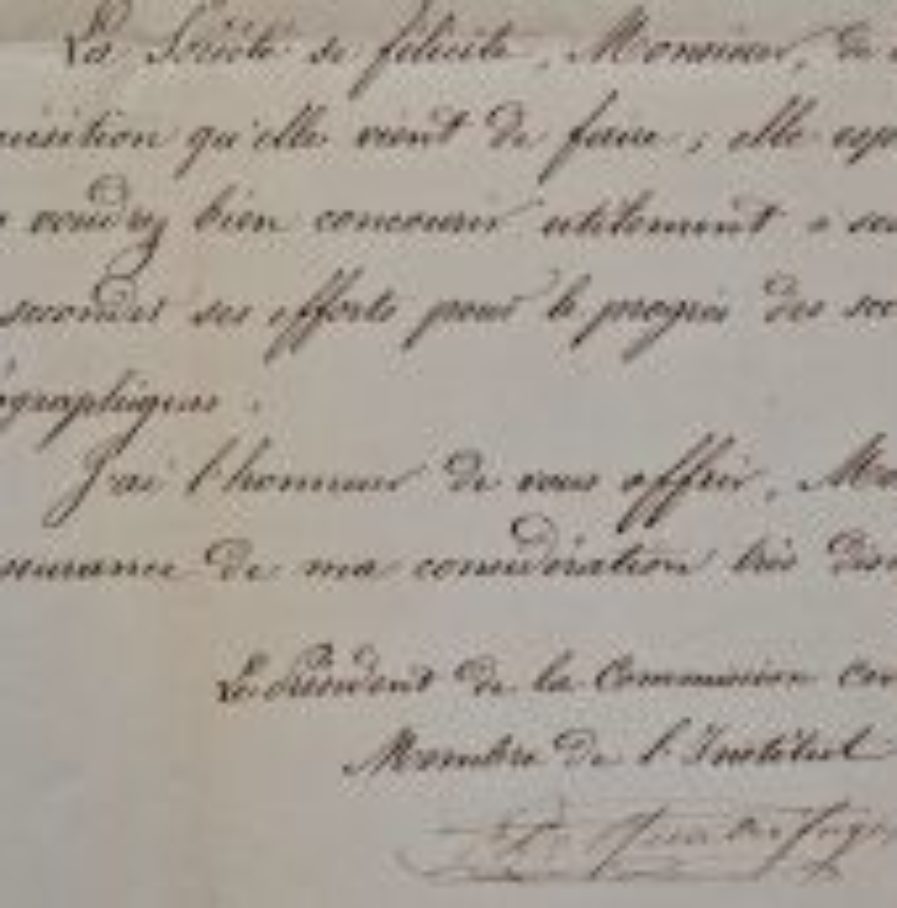 La Société se félicite, Monsieur, de
uisition qu'elle vient de faire; elle esp
voudrez bien concourir utilement à ses
seconder ses efforts pour le progrès des sc
ographiques.
J'ai l'honneur de vous offrir, Mo
ssurance de ma considération très dis
Le Président de la Commission cen
Membre de l'Institut